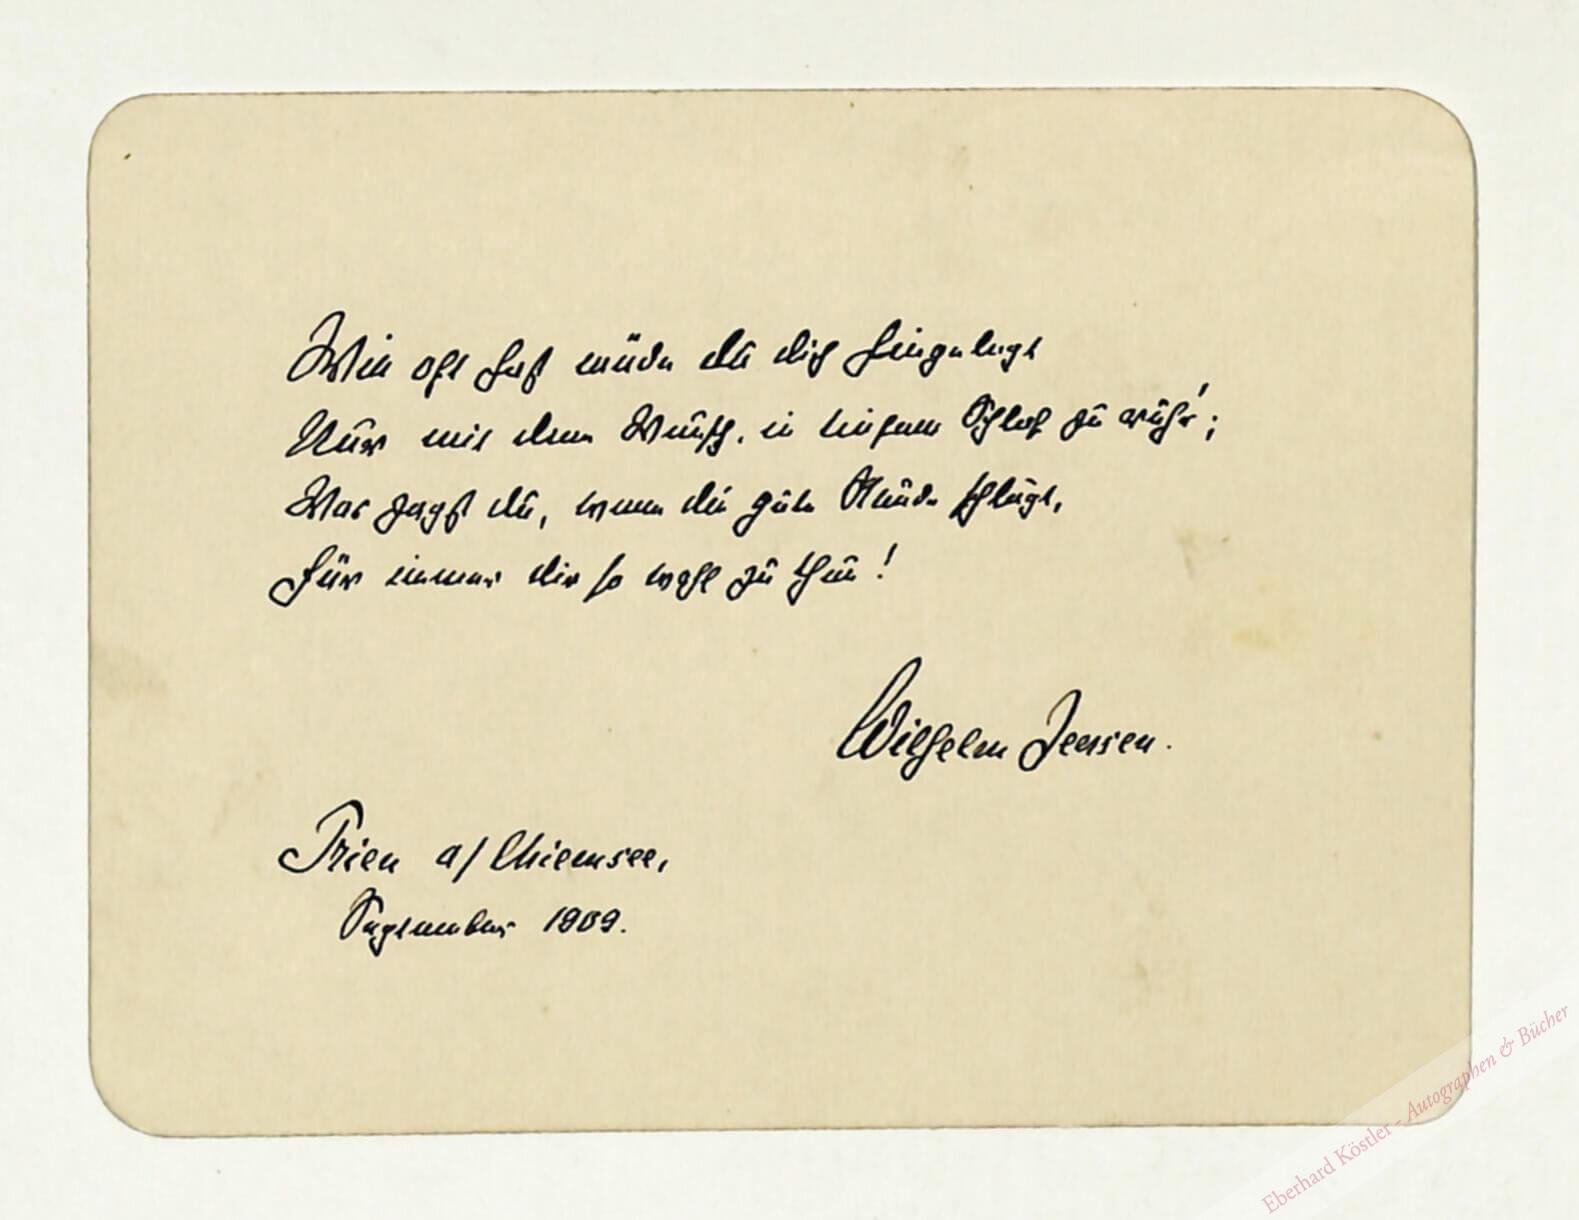 Wie oft hast müde du dich hingelegt
Nur mit dem Wunsch, in tiefem Schlaf zu ruh'n;
Was zagst du, wenn die gute Stunde schlägt,
Für immer dir so wohl zu thun!
Wilhelm Jensen.
Prien a/Chiemsee,
September 1909.
Eberhard Köstler - Autographen & Bücher